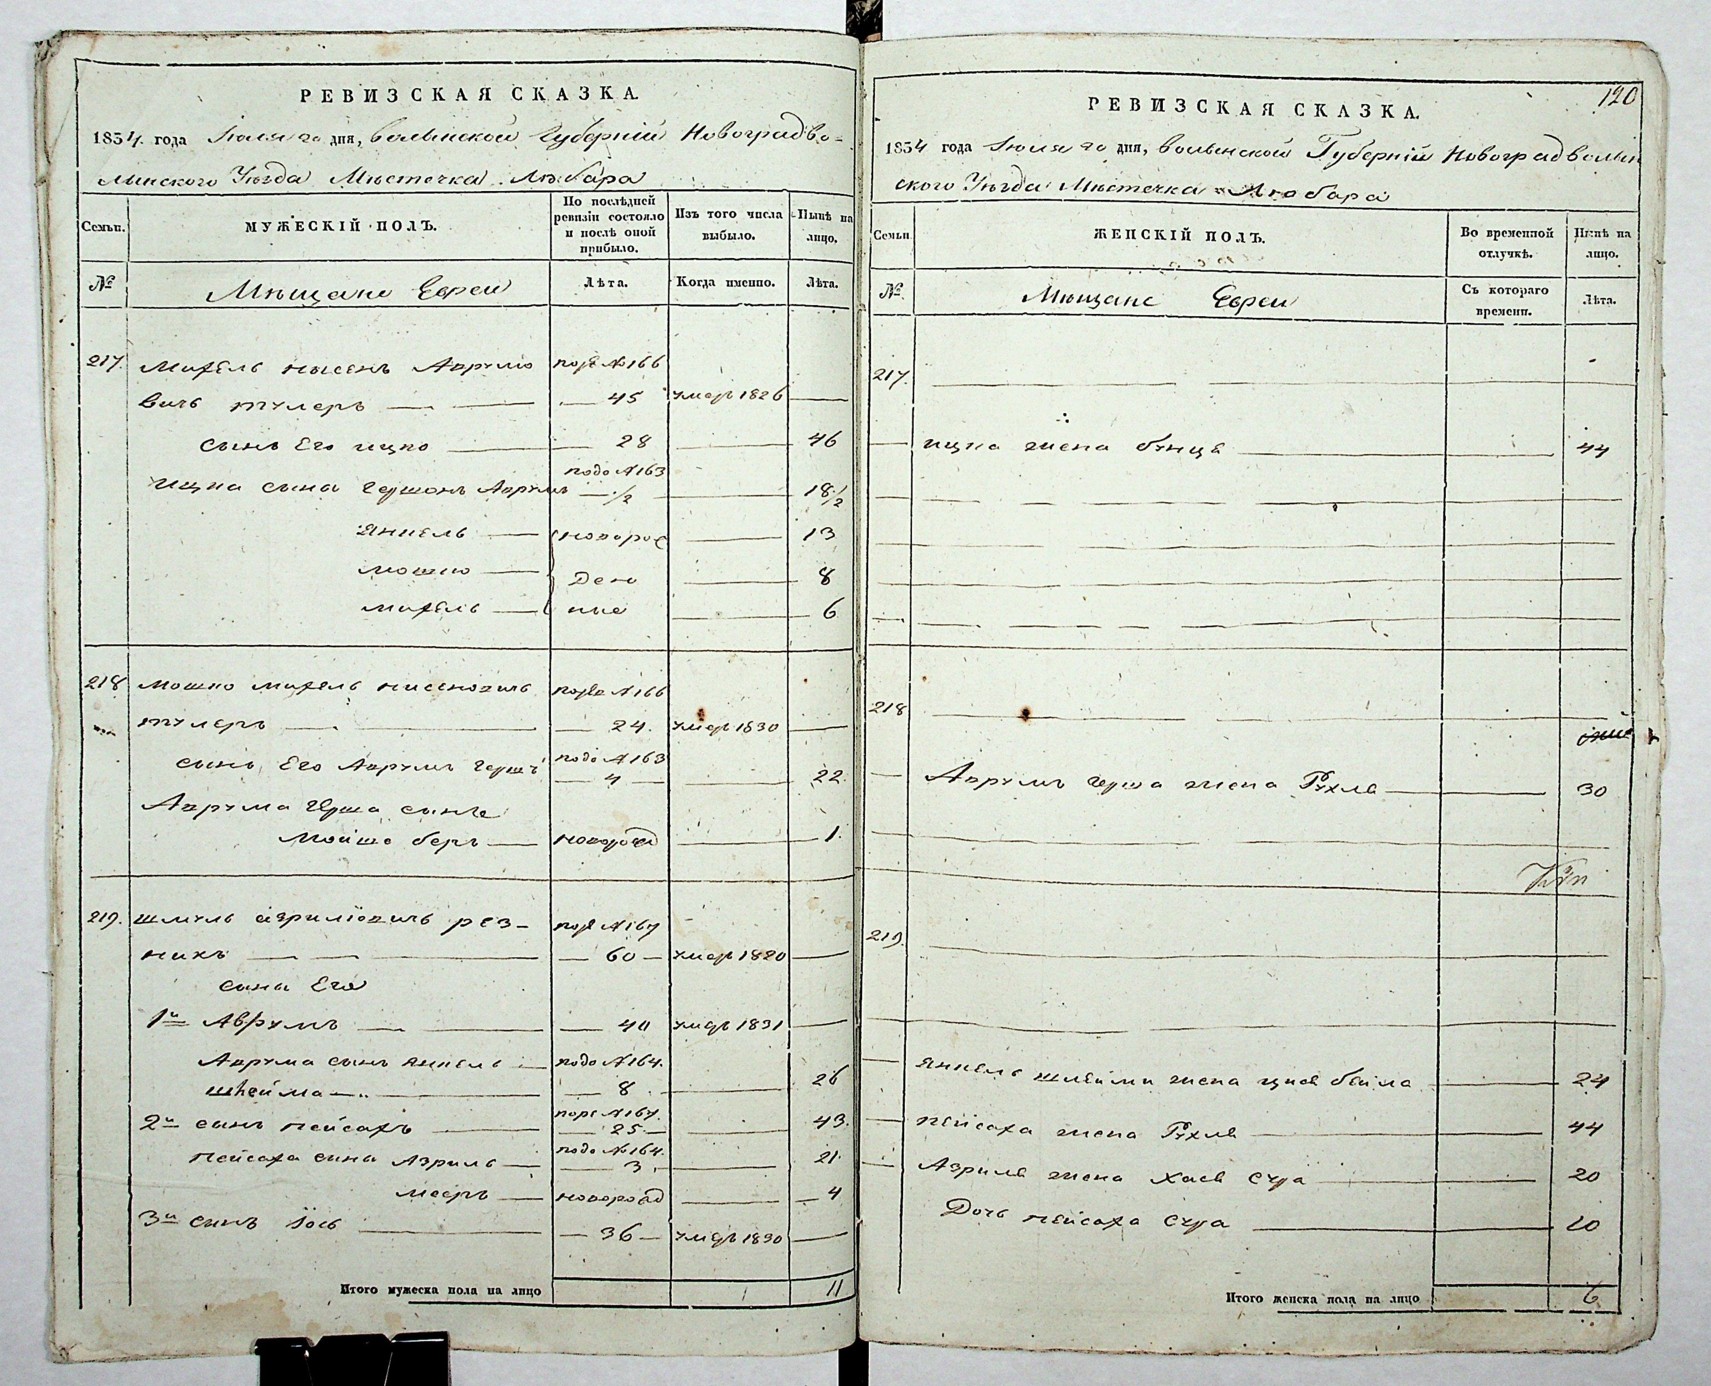 РЕВИЗСКАЯ СКАЗКА.
1834. года Іюля 20 дня, Волынской Губерніи Новоградво-
лынского Уѣзда Мѣстечка Любара
Семьи.
МУЖЕСКІЙ ПОЛЪ.
По послѣдней ревизіи состояло и послѣ оной прибыло.
Изъ того числа выбыло.
Нынѣ на лицо.
№
Мѣщане Евреи
Лѣта.
Когда именно.
Лѣта.
217. Михель Нысенъ Аврумо под № 166
вичъ тулеръ — — — 45 умеръ 1826 —
сынъ Его ицко — — 28 — 46
подо № 163
Ицка сыны Гершонъ Аврумъ — 1/2 — 18 1/2
Янкель — новорож — 13
Мошко — дено — 8
Михель — ные — 6
218 Мошко Михель Нисеновичъ под № 166
тулеръ — — — 24. умеръ 1830 —
подо № 163
сынъ Его Аврумъ Гершъ — 4 — 22.
Аврума Герша сынъ
Мойше беръ — новорожд — 1.
219. Шмуль Азриліовичъ рез- под № 167
никъ — — — 60 — умеръ 1820 —
сыны Его
1й Аврумъ — — — 40 умеръ 1831 —
Аврума сынъ Янкель — подо № 164.
Шлейма — — 8 — 26
под № 167.
2й сынъ Пейсахъ — — 25 — — 43.
подо № 164.
Пейсаха сыны Азриль — — 3. — 21.
Мееръ — новорожд — — 4
3й сынъ Іось — — 36 — умеръ 1830 —
Итого мужеска пола на лицо 11
120
РЕВИЗСКАЯ СКАЗКА.
1834 года Іюля 20 дня, Волынской Губерніи Новоградволын
ского Уѣзда Мѣстечка Любара
Семьи
ЖЕНСКІЙ ПОЛЪ.
Во временной отлучкѣ.
Нынѣ на лицо.
№.
Мѣщане Евреи
Съ котораго времени.
Лѣта.
217.
— ицка жена бунця — — 44
218
— Аврумъ Герша жена Рухля — — 30
219.
— Янкель Шлеймы жена Цися бейла — 24
— Пейсаха жена Рухля — — 44
— Азриля жена Хася Сура — — 20
Дочь Пейсаха Сура — — 10
Итого женска пола на лицо 6